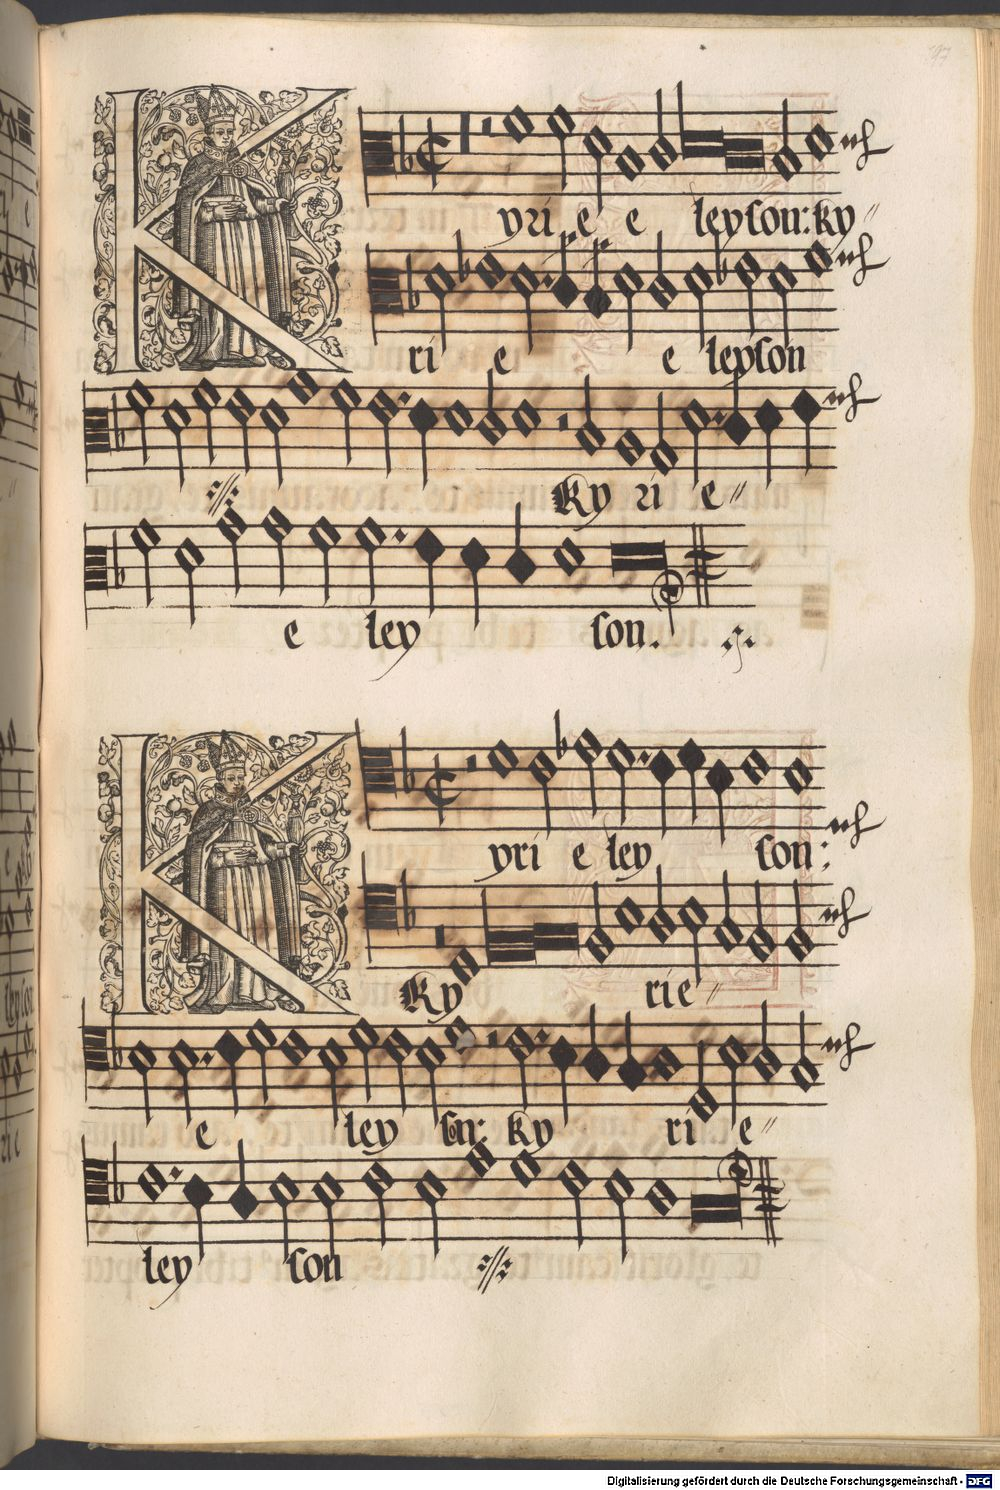 Kyri e e leyson: ky
ri e e leyson
Ky ri e
e ley son.
Kyri e ley son:
Ky rie
e ley son: ky ri e
ley son
Digitalisierung gefördert durch die Deutsche Forschungsgemeinschaft - DFG